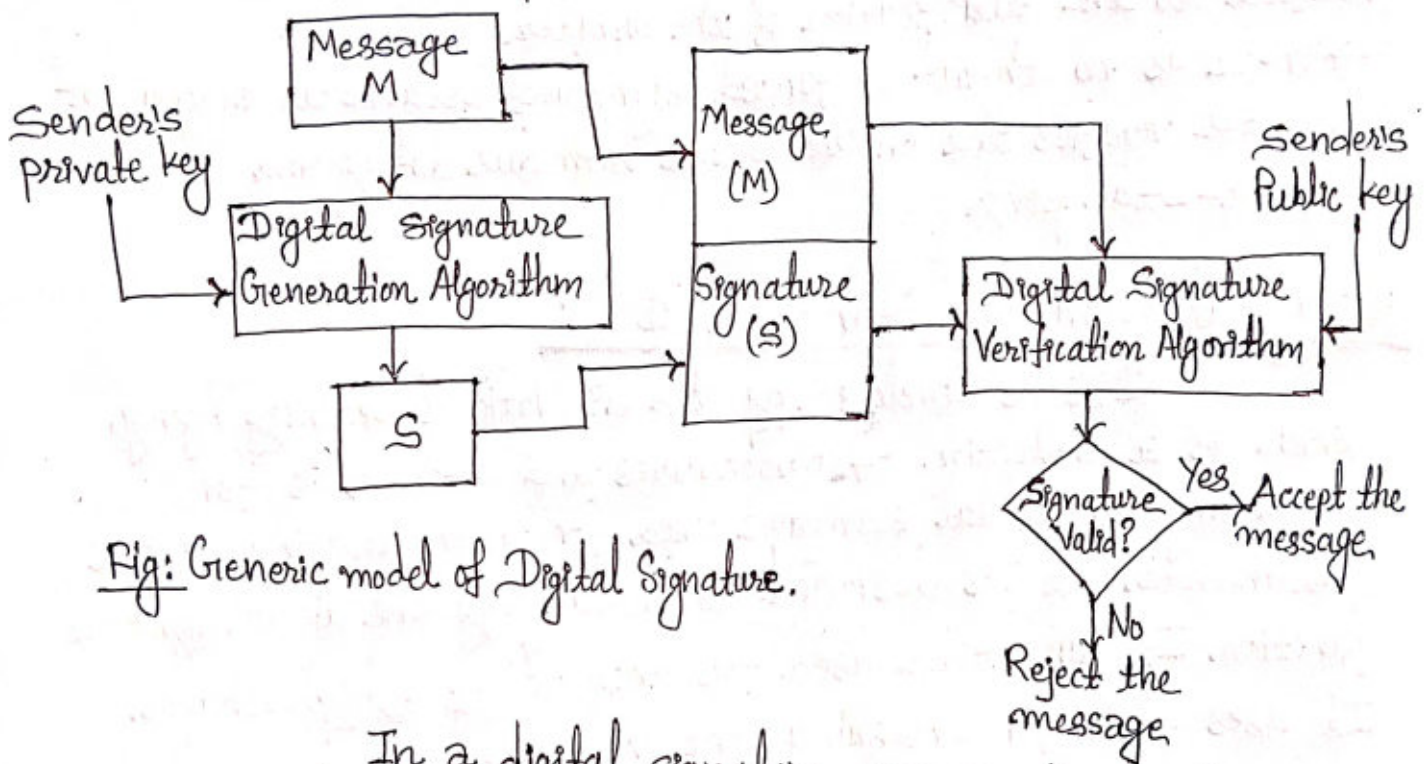 Message
M
Sender's
private key
Digital Signature
Generation Algorithm
S
Message
(M)
Signature
(S)
Sender's
Public key
Digital Signature
Verification Algorithm
Signature
Valid?
Yes
Accept the
message
No
Reject the
message
Fig: Generic model of Digital Signature.
In a digital